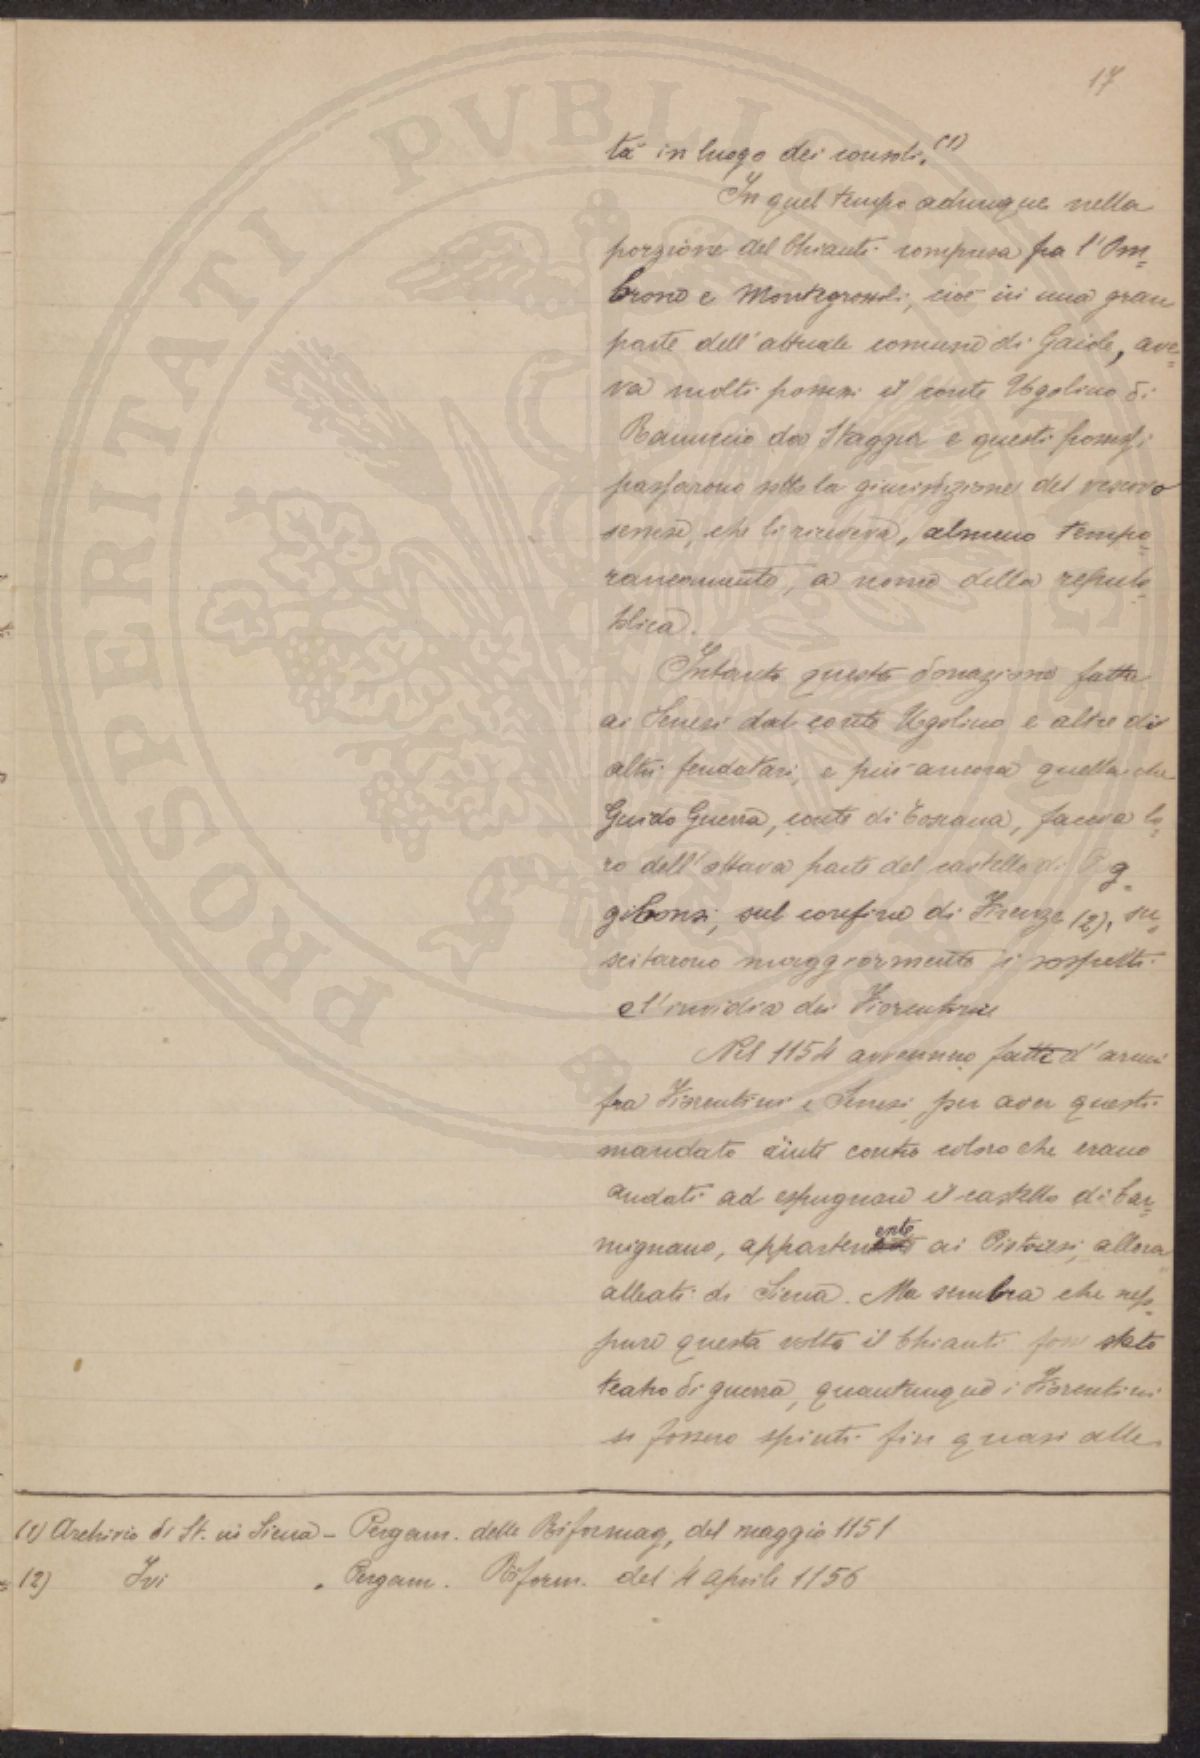 17
tà in luogo dei consoli. (1)
In quel tempo adunque nella
porzione del Chianti compresa fra l'Om=
brone e Montegrossoli, cioè in una gran
parte dell'attuale comune di Gaiole, ave=
va molti possessi il conte Ugolino di
Ranuccio da Staggia e questi possessi
passarono sotto la giurisdizione del vescovo
senese, che li riceveva, almeno tempo=
raneamente, a nome della repub=
blica.
Intanto questa donazione fatta
ai Senesi dal conte Ugolino e altre di
altri feudatari, e più ancora quella che
Guido Guerra, conte di Toscana, faceva lo=
ro dell'ottava parte del castello di Pog=
gibonsi, sul confine di Firenze (2), su=
scitarono maggiormente i sospetti
e l'invidia dei Fiorentini
Nel 1154 avvennero fatti d'armi
fra Fiorentini e Senesi per aver questi
mandato aiuti contro coloro che erano
andati ad espugnare il castello di Car=
mignano, appartenente ai Pistoiesi, allora
alleati di Siena. Ma sembra che nep=
pure questa volta il Chianti fosse stato
teatro di guerra, quantunque i Fiorentini
si fossero spinti fin quasi alle
(1) Archivio di St. in Siena - Pergam. delle Riformag, del maggio 1151
(2) Ivi . Pergam. Riform. del 4 aprile 1156
PROSPERITATI PVBLICAE